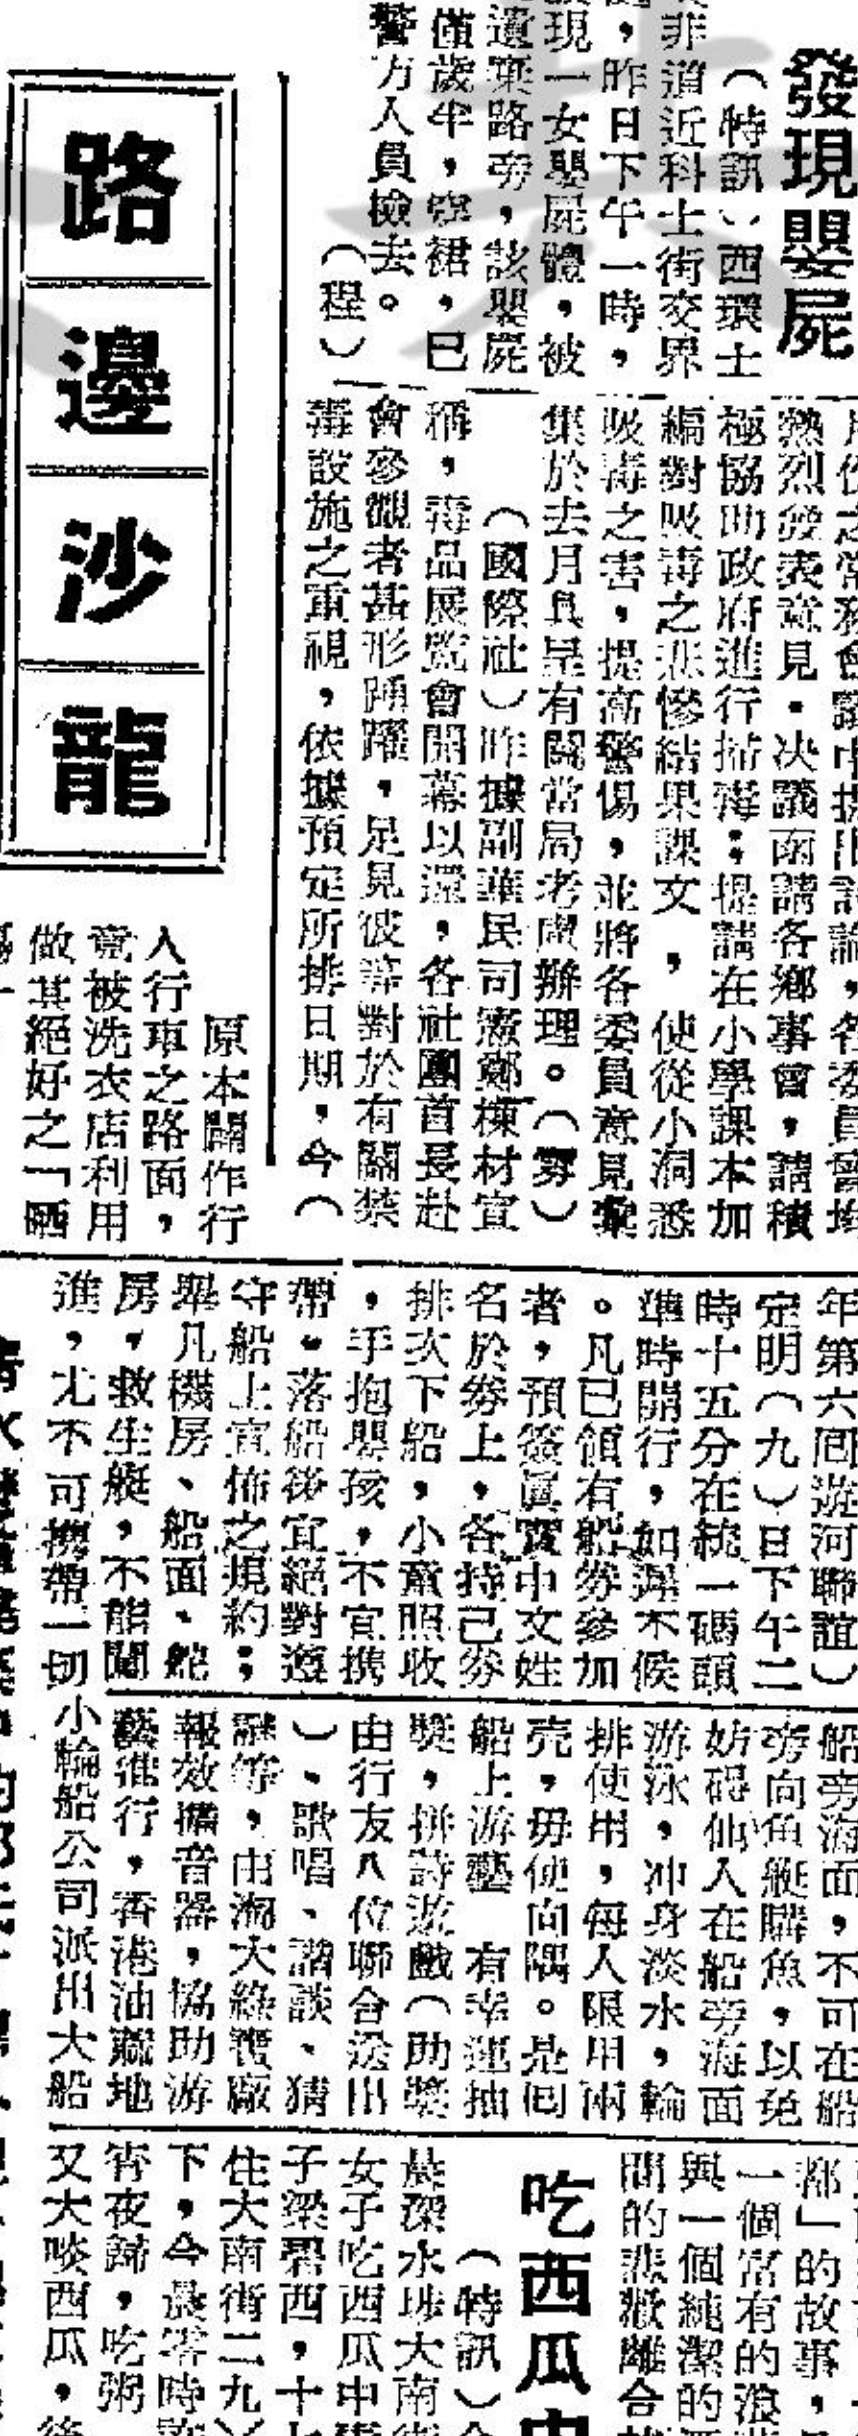 發現嬰屍
（特訊）西環士
非道近科士街交界
，昨日下午一時，
現一女嬰屍體，被
遺棄路旁，該嬰屍
僅歲半，空裙，已
警方人員檢去。
（程）
熱烈發表意見．决議函請各鄉事會，請積
極協助政府進行掃毒：提請在小學課本加
編對吸毒之悲慘結果課文，使從小洞悉
吸毒之害，提高警惕，並將各委員意見彙
集於去月具呈有關當局考慮辦理。（雰）
（國際社）昨據副華民司憲鄭棟材宣
稱，毒品展覽會開幕以還，各社團首長赴
會參觀者甚形踴躍，足見彼等對於有關禁
毒設施之重視，依據預定所排日期，今（
路邊沙龍
原本闢作行
人行車之路面，
竟被洗衣店利用
做其絕好之「晒
年第六回遊河聯誼）
定明（九）日下午二
時十五分在統一碼頭
準時開行，如遲不候
。凡已領有船券參加
者，預簽眞實中文姓
名於券上，各持己券
排次下船，小童照收
，手抱嬰孩，不宜携
帶。落船後宜絕對遵
守船上宣佈之規約：
舉凡機房、船面、舵
房，救生艇，不能闖
進，尤不可携帶一切
船旁海面，不可在船
旁向魚艇購魚，以免
妨碍他人在船旁海面
游泳，冲身淡水，輪
排使用，每人限用兩
壳，毋使向隅。是回
船上游藝 有幸運抽
獎，拼詩遊戲（助獎
由行友八位聯合送出
）、歌唱、諧談、猜
謎等，由淘大綠寶廠
報效擴音器，協助游
藝進行，香港油蔴地
小輪船公司派出大船
都」的故事，
一個富有的浪
與一個純潔的
間的悲歡離合
吃西瓜中
（特訊）今
晨深水埗大南街
女子吃西瓜中
子梁碧西，十七
住大南街二九
下，今晨零時許
宵夜歸，吃粥
又大啖西瓜，後